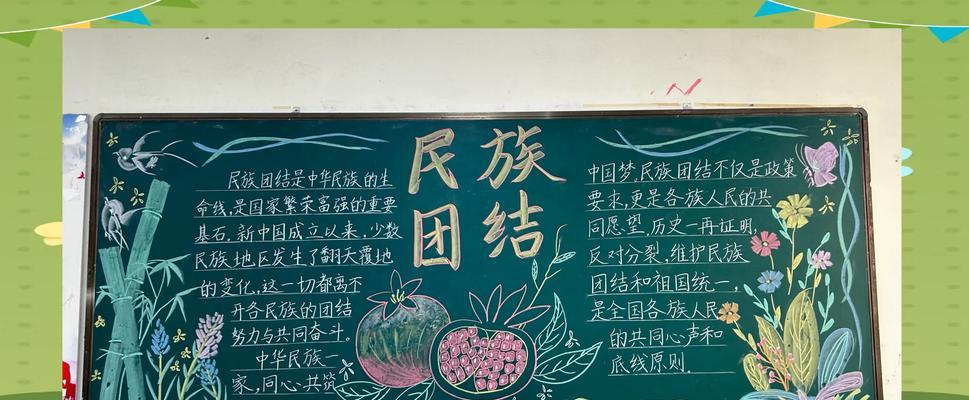 民族
团结
民族团结是中华民族的生
命线,是国家繁荣富强的重要
基石.新中国成立以来.少数
民族地区发生了翻天覆地
的变化,这一切都离不
开各民族的团结
努力与共同奋斗。
中华民族一
家,同心共筑
中国梦,民族团结不仅是政策
要求,更是各族人民的共
同愿望,历史一再证明,
反对分裂,维护民族
团结和祖国统一,
是全国各族人民
的共同心声和
底线原则.